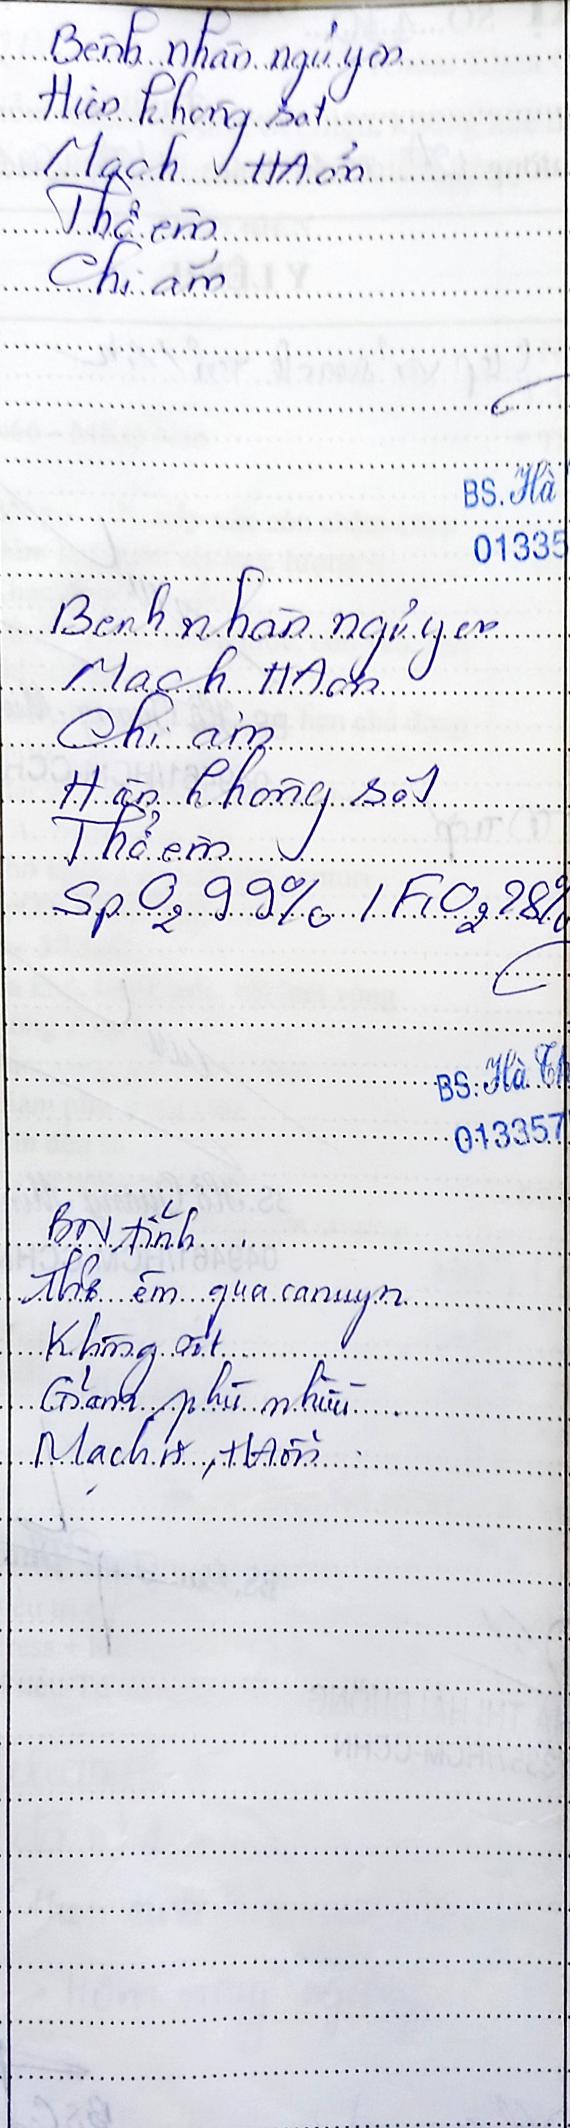 Bệnh nhân ngủ yên
Hiện không sốt
Mạch HA ổn
Thở êm
Chi ấm
BS. Hà
01335
Bệnh nhân ngủ yên
Mạch HA ổn
Chi ấm
Hiện không sốt
Thở êm
SpO2 99% / FiO2 28%
BS. Hà Th
013357
BN tỉnh
Thở êm qua canuyn
Không sốt
Giảm phù nhiều
Mạch rõ, HA ổn